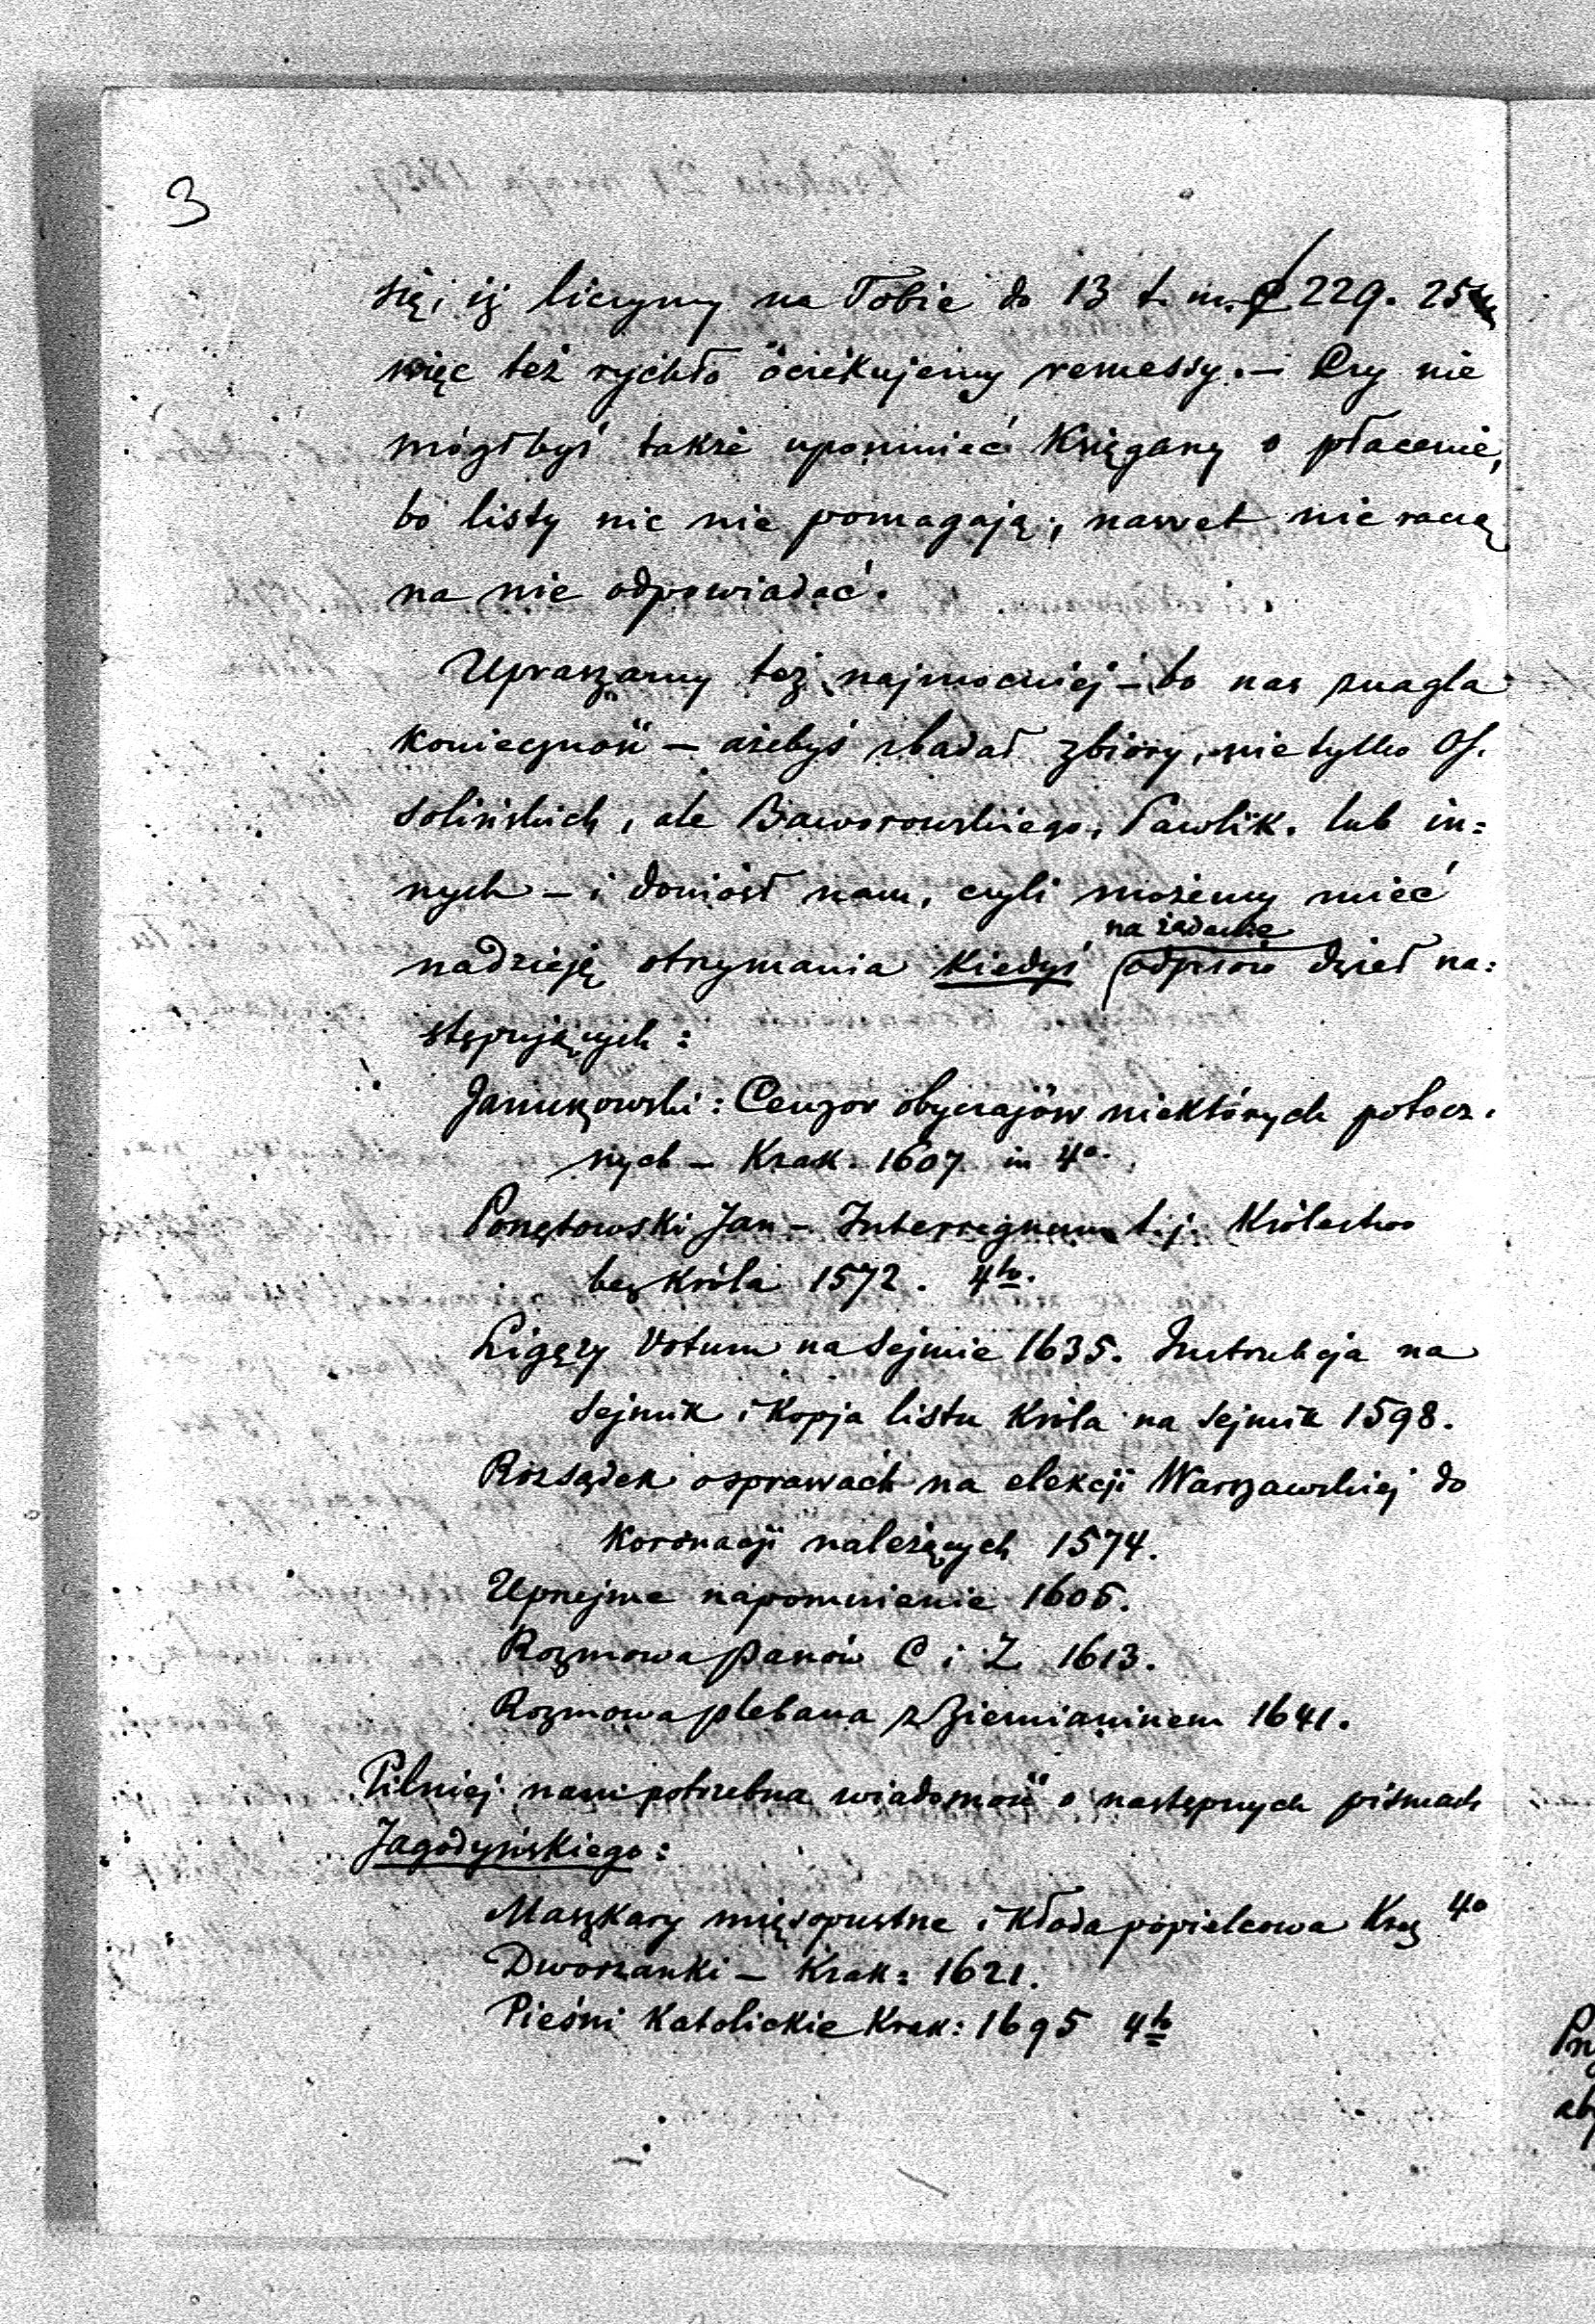 3
się, iż liczymy na Tobie do 13 t. m. f 229. 25
więc też rychło oczekujemy remessy. — Czy nie
mógłbyś także upomnieć Księgarzy o płacenie,
bo listy nic nie pomagają, nawet nie raczą
na nie odpowiadać.
Upraszamy też najmocniej — bo nas znagla
konieczność — ażebyś zbadał zbiory, nie tylko Os.
solińskich, ale Baworowskiego, Pawlik. lub in=
nych — i doniósł nam, czyli możemy mieć
na żądanie
nadzieję otrzymania kiedyś odpisów dzieł na=
stępujących:
Januszowski: Cenzor obyczajów niektórych potocz.
nych — Krak. 1607 in 4o.
Ponętowski Jan — Interregnum t. j. Królestwo
bez króla 1572. 4to.
Ligęzy Votum na sejmie 1635. Instrukcja na
sejmik i Kopja listu Króla na sejmik 1598.
Rozsądek o sprawach na elekcji Warszawskiej do
koronacji należących 1574.
Uprzejme napomnienie 1606.
Rozmowa panów C i Z 1613.
Rozmowa plebana z Ziemianinem 1641.
Pilniej nam potrzebna wiadomość o następnych pismach
Jagodyńskiego:
Maszkary mięsopustne i Kłoda popielcowa Krak 4o
Dworzanki — Krak: 1621.
Pieśni Katolickie Krak: 1695 4to